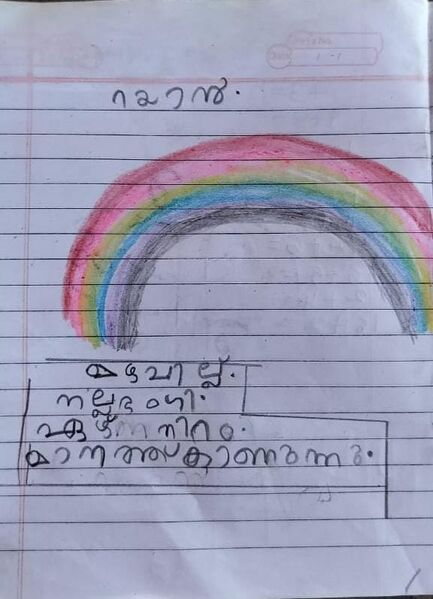 റയാൻ.
മഴവില്ല്.
നല്ലഭംഗി.
ഏഴ് നിറം.
മാനത്ത്കാണുന്നു.